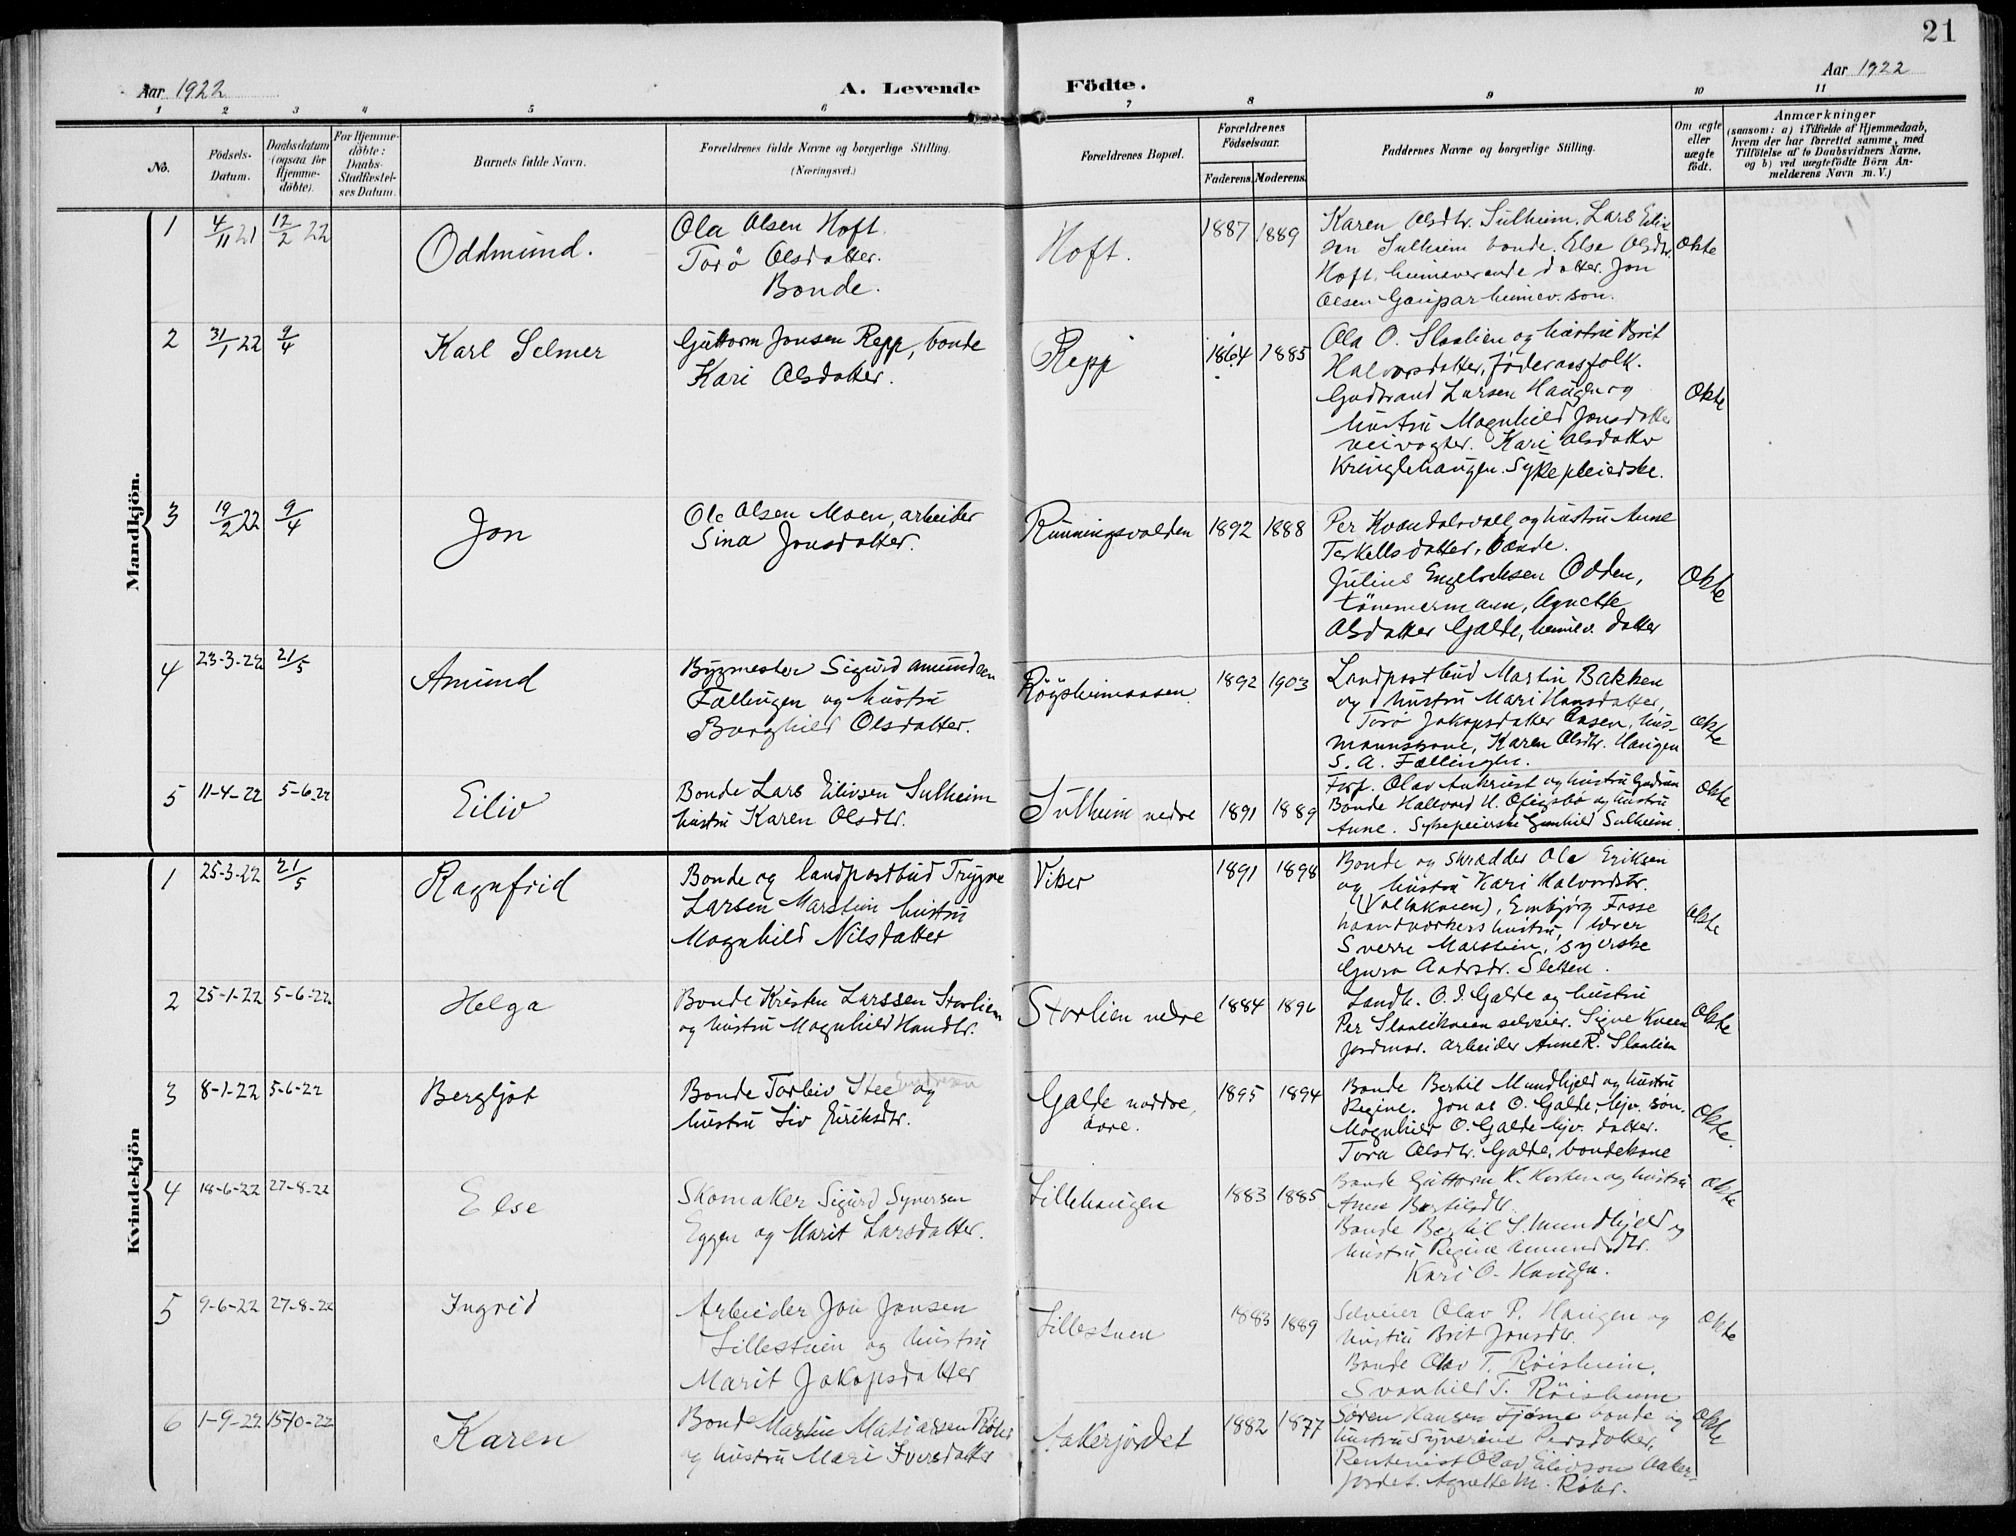 21
Aar 1922
A. Levende Födte.
Aar 1922
1 2 3 4 5 6 7 8 9 10 11
No.
Födsels-Datum.
Daabsdatum (ogsaa for Hjemme-döbte).
For Hjemme-döbte: Daabs-Stadfæstel-ses Datum.
Barnets fulde Navn.
Forældrenes fulde Navne og borgerlige Stilling.
(Næringsvei.)
Forældrenes Bopæl.
Forældrenes Födselsaar.
Faderens. Moderens.
Faddernes Navne og borgerlige Stilling.
Om ægte eller uægte födt.
Anmærkninger
(saasom: a) i Tilfælde af Hjemmedaab,
hvem der har forrettet samme, med
Tilföielse af to Daabsvidners Navne,
og b) ved uægtefödte Börn An-
melderens Navn m. V.)
Mandkjön.
1 4/11 21 12/2 22 Oddmund.
Ola Olsen Hoft.
Torö Olsdatter.
Bonde.
Hoft. 1887 1889
Karen Olsdtr. Sulheim. Lars Eiliv-
sen Sulheim bonde. Else Olsdtr.
Hoft, heimeverende datter. Jon
Olsen Gaupar heimev. son.
Ekte
2 31/1 22 9/4 Karl Selmer
Guttorm Jonsen Repp, bonde
Kari Olsdatter.
Repp 1864 1885
Ola O. Slaalien og hustru Brit
Halvorsdatter, föderaasfolk.
Gudbrand Larsen Haugen og
hustru Magnhild Jonsdatter
veivogter. Kari Olsdatter
Kringlehaugen. Sykepleierske.
Ekte
3 19/2 22 9/4 Jon
Ole Olsen Moen, arbeider
Sina Jonsdatter.
Runningsvolden 1892 1888
Per Kvandalsvoll og hustru Anne
Terkellsdatter, bonde.
Julius Engebretsen Odden,
tömmermann, Agnette
Olsdatter Galde, heimev. datter
Ekte
4 23-3-22 21/5 Amund
Bygmester Sigurd Amundsen
Fællingen og hustru
Borghild Olsdatter.
Röysheimaasen. 1892 1903
Landpostbud Martin Bakken
og hustru Mari Hansdatter,
Torö Jakopsdatter Aasen, hus-
mannskone, Karen Olsdtr. Haugen
S. A. Fællingen.
Ekte
5 11-4-22 5-6-22 Eiliv
Bonde Lars Eilivsen Sulheim
hustru Karen Olsdtr.
Sulheim nedre 1891 1889
Forp. Olav Aukrust og hustru Gudrun
Bonde Hallvard H. Ofigsbö og hustru
Anne. Sykepleierske Gunhild Sulheim.
Ekte
Kvindekjön
1 25-3-22 21/5 Ragnfrid
Bonde og landpostbud Trygve
Larsen Marstein hustru
Magnhild Nilsdatter
Viker 1891 1898
Bonde og skrædder Ole Eriksen
og hustru Kari Halvordsdtr.
haandverkers hustru, lærer
Sverre Marstein, syerske
Ekte
2 25-1-22 5-6-22 Helga
Bonde Kristen Larssen Storlien
og hustru Magnhild Hansdtr.
Storlien nedre 1884 1896
Landh. O. J. Galde og hustru
Per Slaalikveen selveier. Signe Kveen
jordmor. Arbeider Anne R. Slaalien
Ekte
3 8-1-22 5-6-22 Bergljot
Bonde Torleiv Stee og
hustru Liv Eiriksdtr.
Galde nordre, övre. 1895 1894
Bonde Bertil Mundhjeld og hustru
Regine. Jonas O. Galde, hjv. son.
Magnhild O. Galde hjv. datter.
Tora Olsdtr. Galde, bondekone
Ekte.
4 18-6-22 27-8-22 Else
Skomaker Sigurd Syversen
Eggen og Marit Larsdatter.
Lillehaugen 1883 1885
Bonde Guttorm K. Kosken og hustru
Anne Bertilsdtr.
Bonde Bertil S. Mundhjeld og
hustru Regine Amundsdtr.
Kari O. Haugen.
Ekte
5 9-6-22 27-8-22 Ingrid
Arbeider Jon Jonsen
Lillestuen og hustru
Marit Jakopsdatter
Lillestuen 1883 1889
Selveier Olav P. Haugen og
hustru Brit Jonsdtr.
Bonde Olav T. Röisheim,
Svanhild T. Röisheim
Ekte
6 1-9-22 15-10-22 Karen
Bonde Martin Matiassen Röhr
og hustru Mari Iversdatter
Aakerjordet 1882 1877
Sören Hansen Tjöme bonde og
hustru Syverine Persdatter,
Rentenist Olav Eilivson Aaker-
jordet. Agnette M. Röhr.
Ekte